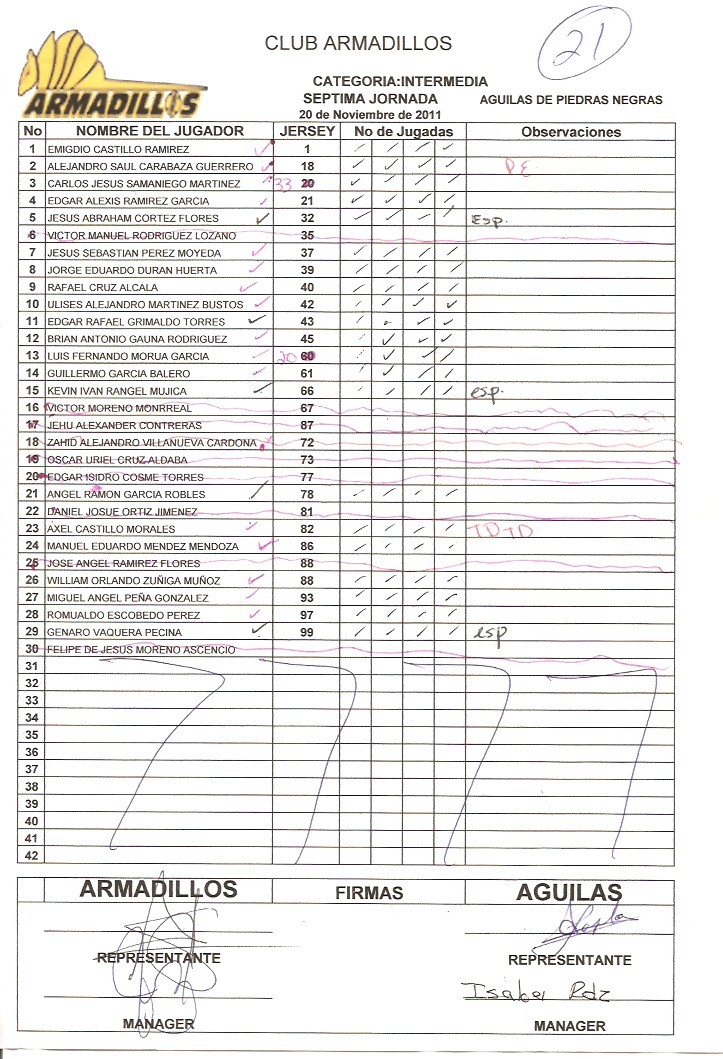 21
CLUB ARMADILLOS
ARMADILLOS
CATEGORIA:INTERMEDIA
SEPTIMA JORNADA AGUILAS DE PIEDRAS NEGRAS
20 de Noviembre de 2011
No NOMBRE DEL JUGADOR JERSEY No de Jugadas Observaciones
1 EMIGDIO CASTILLO RAMIREZ 1
2 ALEJANDRO SAUL CARABAZA GUERRERO 18
3 CARLOS JESUS SAMANIEGO MARTINEZ 33 20
4 EDGAR ALEXIS RAMIREZ GARCIA 21
5 JESUS ABRAHAM CORTEZ FLORES 32 Esp.
6 VICTOR MANUEL RODRIGUEZ LOZANO 35
7 JESUS SEBASTIAN PEREZ MOYEDA 37
8 JORGE EDUARDO DURAN HUERTA 39
9 RAFAEL CRUZ ALCALA 40
10 ULISES ALEJANDRO MARTINEZ BUSTOS 42
11 EDGAR RAFAEL GRIMALDO TORRES 43
12 BRIAN ANTONIO GAUNA RODRIGUEZ 45
13 LUIS FERNANDO MORUA GARCIA 20 60
14 GUILLERMO GARCIA BALERO 61
15 KEVIN IVAN RANGEL MUJICA 66 esp.
16 VICTOR MORENO MONRREAL 67
17 JEHU ALEXANDER CONTRERAS 87
18 ZAHID ALEJANDRO VILLANUEVA CARDONA 72
19 OSCAR URIEL CRUZ ALDABA 73
20 EDGAR ISIDRO COSME TORRES 77
21 ANGEL RAMON GARCIA ROBLES 78
22 DANIEL JOSUE ORTIZ JIMENEZ 81
23 AXEL CASTILLO MORALES 82 TD TD
24 MANUEL EDUARDO MENDEZ MENDOZA 86
25 JOSE ANGEL RAMIREZ FLORES 88
26 WILLIAM ORLANDO ZUÑIGA MUÑOZ 88
27 MIGUEL ANGEL PEÑA GONZALEZ 93
28 ROMUALDO ESCOBEDO PEREZ 97
29 GENARO VAQUERA PECINA 99 esp
30 FELIPE DE JESUS MORENO ASCENCIO
31
32
33
34
35
36
37
38
39
40
41
42
ARMADILLOS FIRMAS AGUILAS
REPRESENTANTE REPRESENTANTE
Isabel Rdz
MANAGER MANAGER